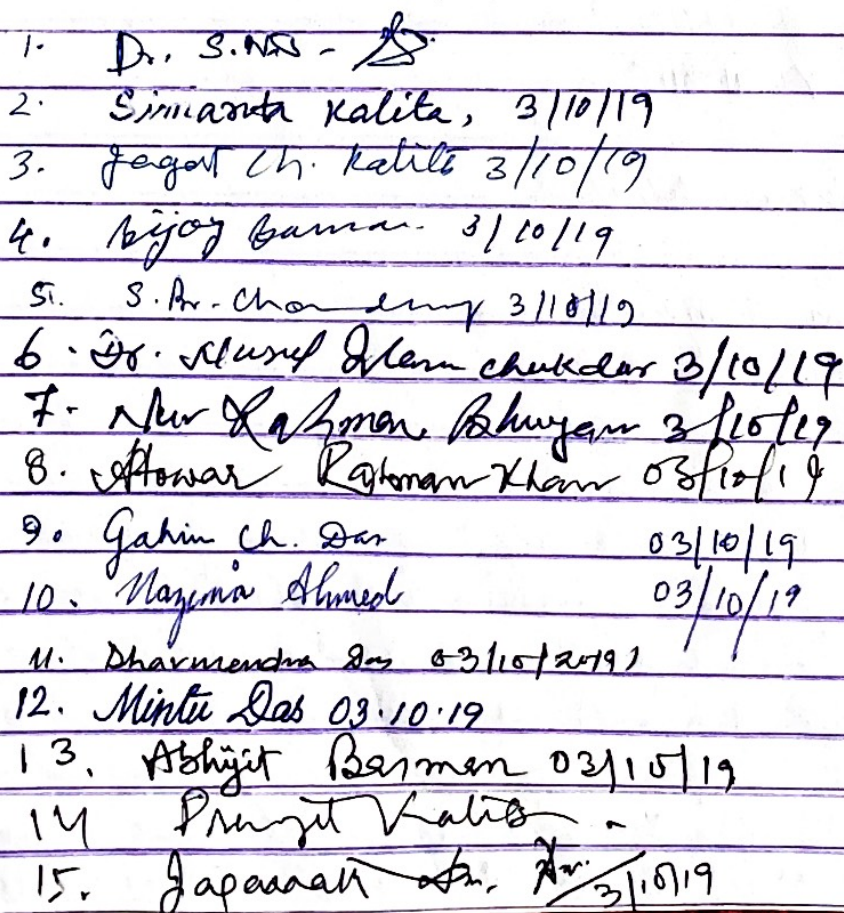 1. Dr. S.
2. Simanta Kalita, 3/10/19
3. Jagat Ch. Kalita 3/10/19
4. Bijoy Barman 3/10/19
5. S. Br. Choudhury 3/10/19
6. Dr. Islam Chukdar 3/10/19
7. Nur Rahman Bhuyan 3/10/19
8. Atowar Rahman Khan 03/10/19
9. Gahin Ch. Das 03/10/19
10. Nazima Ahmed 03/10/19
11. Dharmendra Das 03/10/2019
12. Mintu Das 03.10.19
13. Abhijit Barman 03/10/19
14 Pranjit Kalita
15. 3/10/19